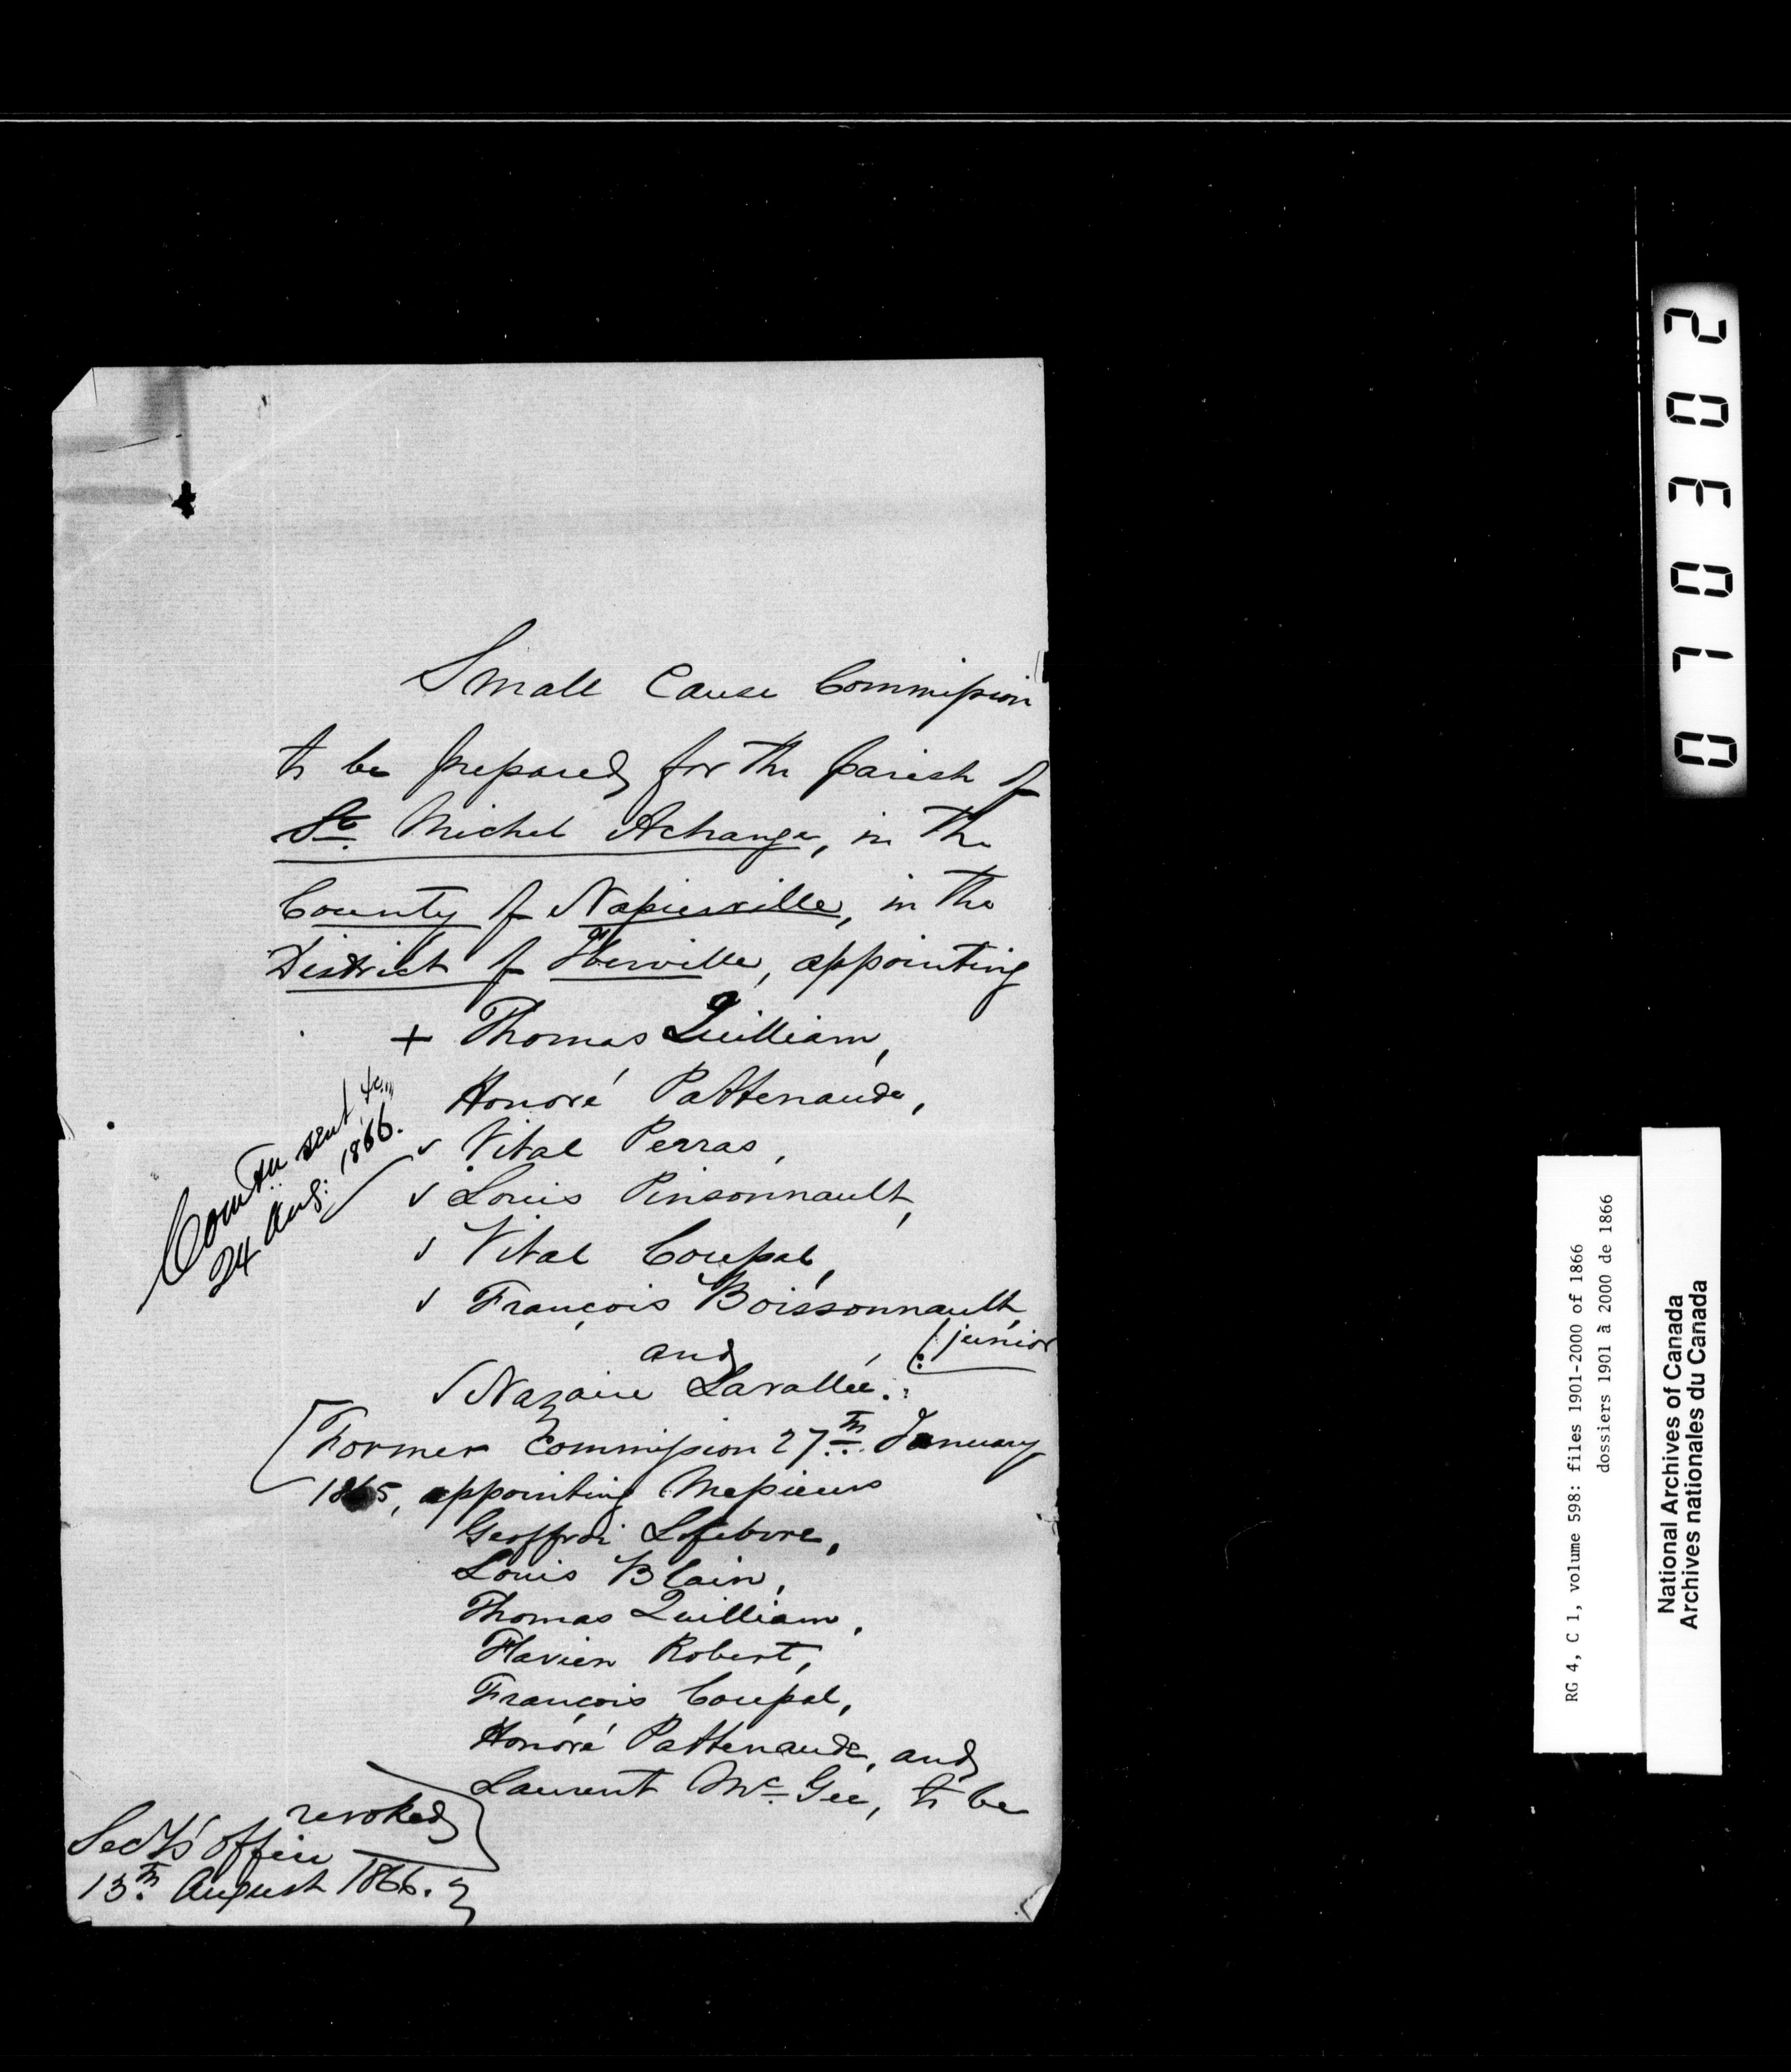 Small Cause Commission
to be prepared for the parish of
St. Michel Achange, in the
County of Napierville, in the
District of Iberville, appointing
+ Thomas Quilliam,
Honoré Pattenaude,
✓ Vital Perras,
✓ Louis Pinsonnault,
✓ Vital Coupal,
✓ François Boissonnault,
(junior
and
✓ Nazaire Lavallée.
sent &c.
24 Aug: 1866.
[Former Commission 27th January
1865, appointing Messieurs
Geoffroi Lefebvre,
Louis Blain,
Thomas Quilliam,
Flavien Robert,
François Coupal,
Honoré Pattenaude, and
Laurent McGee, to be
revoked
Secy's office
13th August 1866.
010302
RG 4, C 1, volume 598: files 1901-2000 of 1866
dossiers 1901 à 2000 de 1866
National Archives of Canada
Archives nationales du Canada